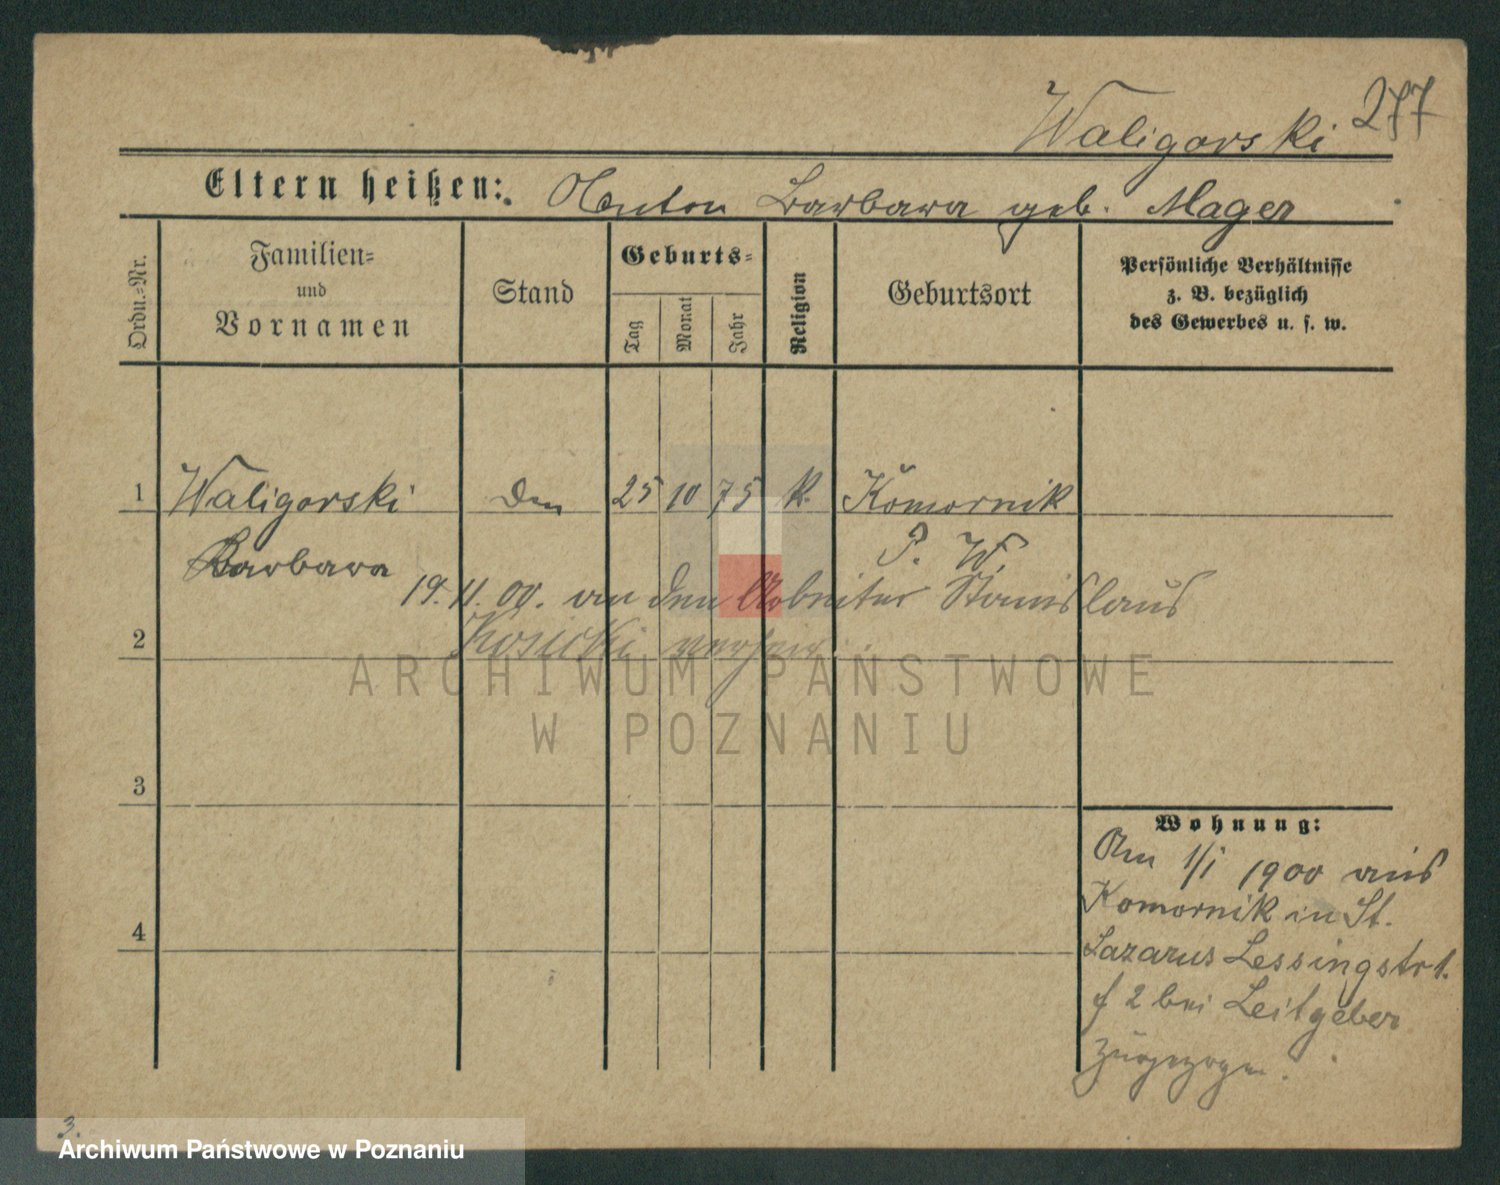 277
Waligorski
Eltern heißen: Anton Barbara geb. Mager
Ordn.-Nr.
Familien-
und
Vornamen
Stand
Geburts-
Tag
Monat
Jahr
Religion
Geburtsort
Persönliche Verhältnisse
z. B. bezüglich
des Gewerbes u. s. w.
1 Waligorski 25 10 75 k. Komornik
Barbara P. W.
19. 11. 00. an den Arbeiter Stanislaus
2 Kosicki verheir.
ARCHIWUM PAŃSTWOWE
W POZNANIU
3
4
Wohnung:
Am 1/1 1900 aus
Komornik in St.
Lazarus Lessingstr 1.
2 bei Leitgeber
zugezogen.
3.
Archiwum Państwowe w Poznaniu